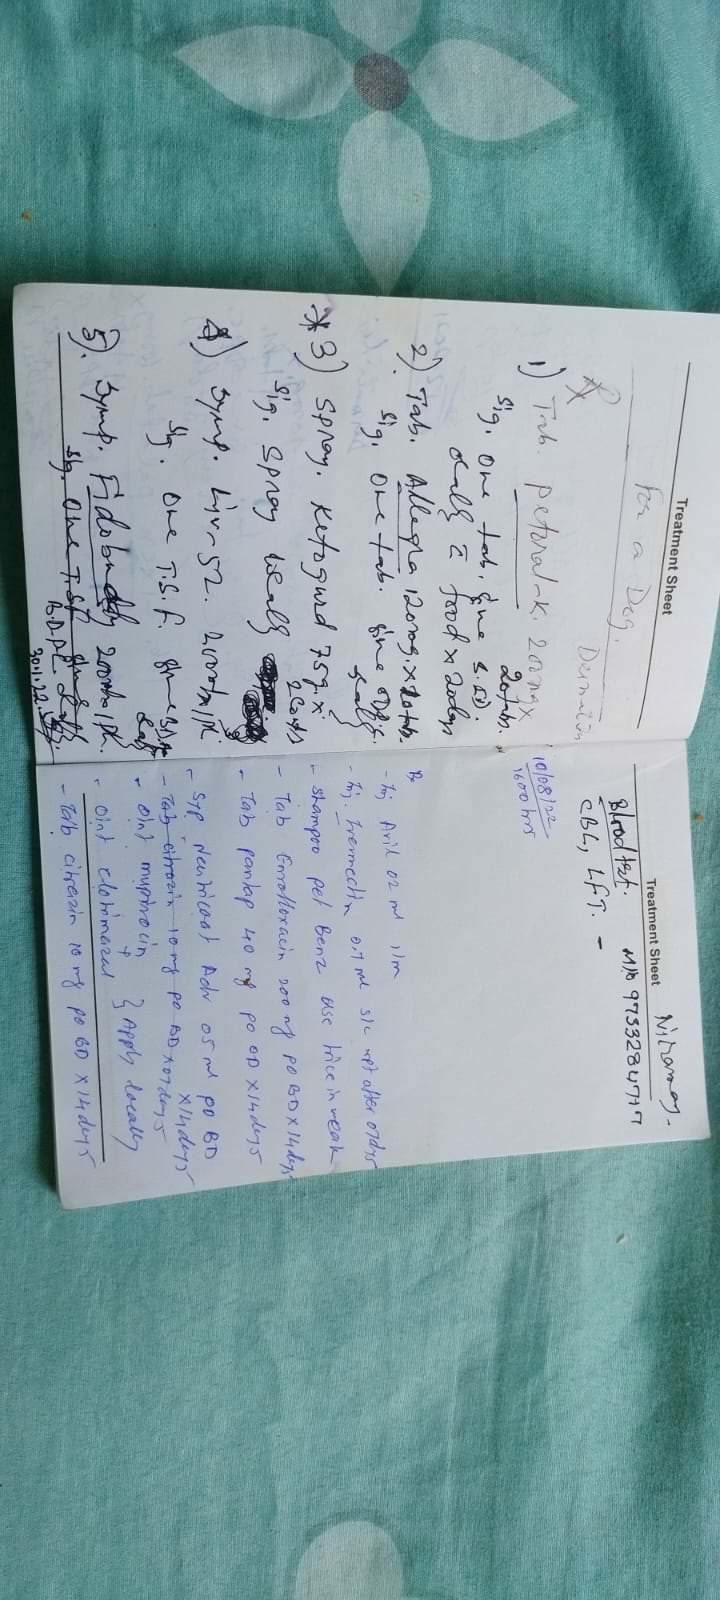 Treatment Sheet
For a Dog.
Rx
1) Tab. petoral-K. 200mg x 20tabs.
Sig. One tab. S.I.D.
daily c food x 20days
2). Tab. Allegra 120mg. x 20tabs.
Sig. One tab. daily.
3) Spray. Ketogurd 75g. x
Sig. Spray
4) Syrup. Liv-52. 200ml
Sig. One T.S.F.
5). Syrup. 200ml
Sig. One T.S.F.
30.1.22.
Treatment Sheet
Blood test. M/N 9733284717
CBC, LFT. -
10/08/22
1600 hrs
Rx
- Inj Avil 02 ml I/m
- Inj. Ivermectin 0.7 ml S/c rpt after 07days
- Shampoo pet Benz use twice in weak
- Tab Enrofloxacin 200 mg PO BD X 14 days
- Tab pantap 40 mg PO OD X 14 days
- Syp Neutricoat Adv 05 ml PO BD
X 14 days
- Tab citrazin 10 mg PO BD X 07 days
- Oint mupirocin
+ } Apply locally
- Oint clotimazal
- Tab citrazin 10 mg PO BD X 14 days